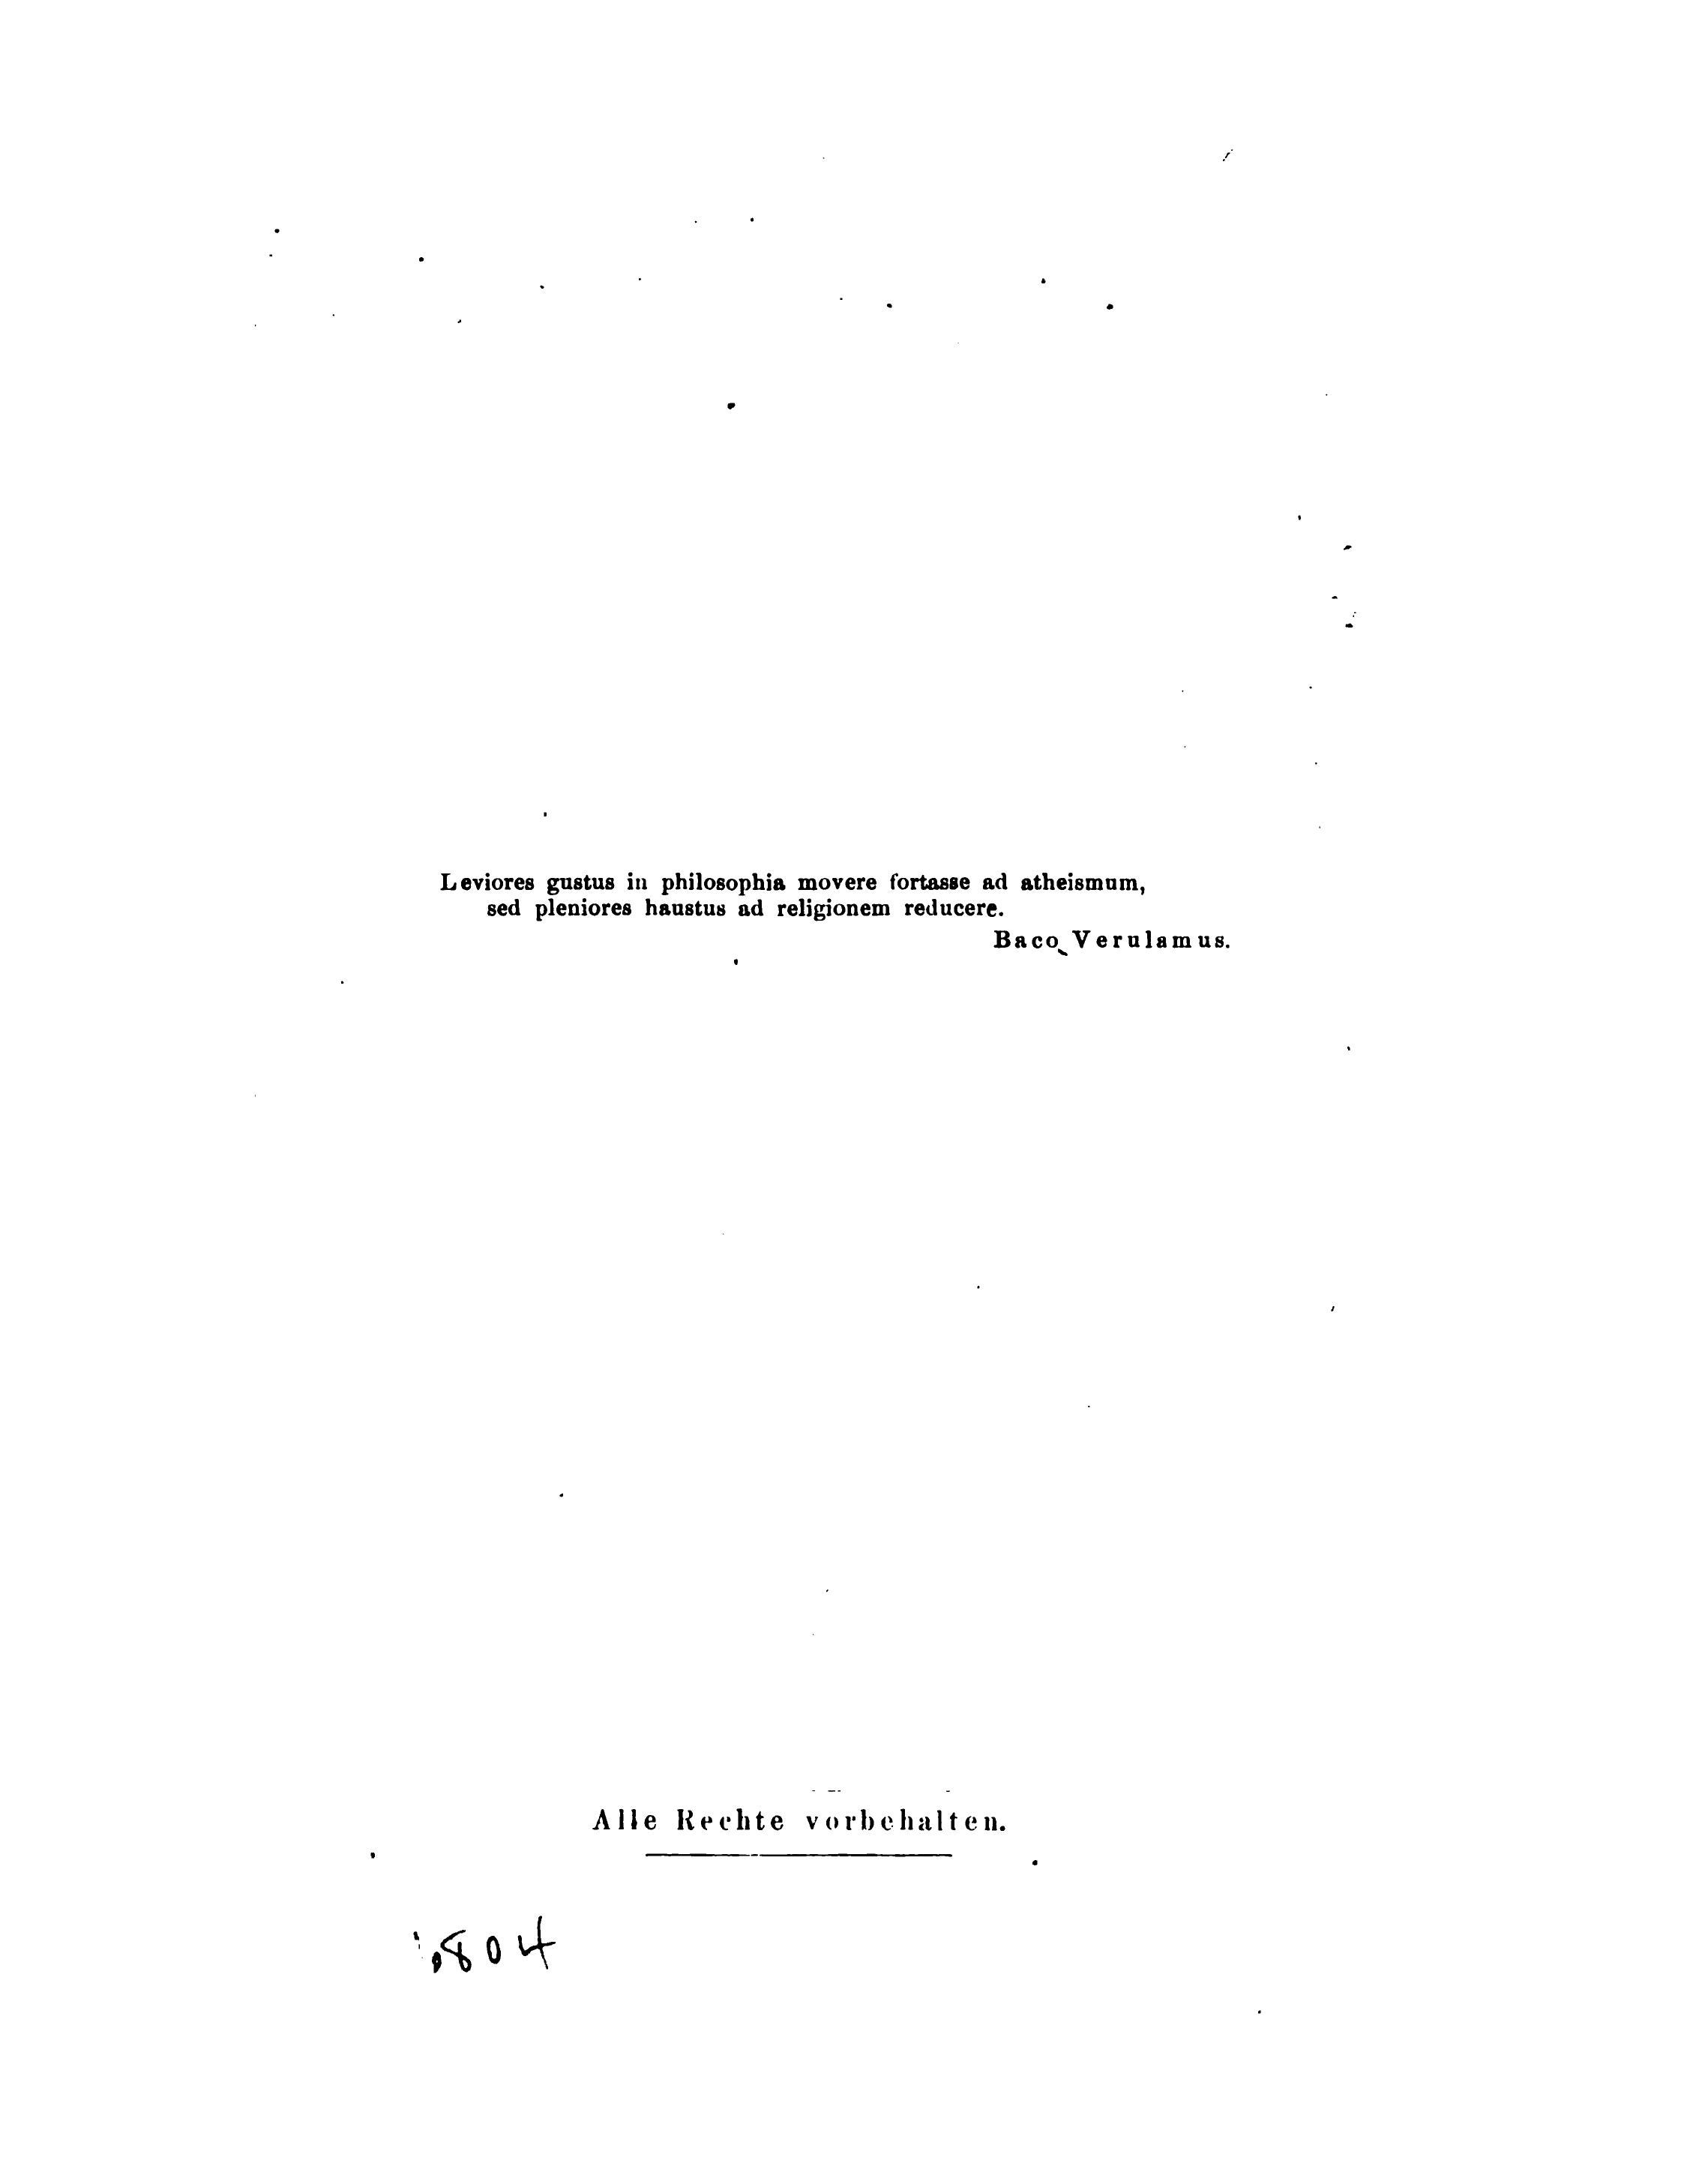 Leviores gustus in philosophia movere fortasse ad atheismum,
sed pleniores haustus ad religionem reducere.
Baco Verulamus.
Alle Rechte vorbehalten.
804